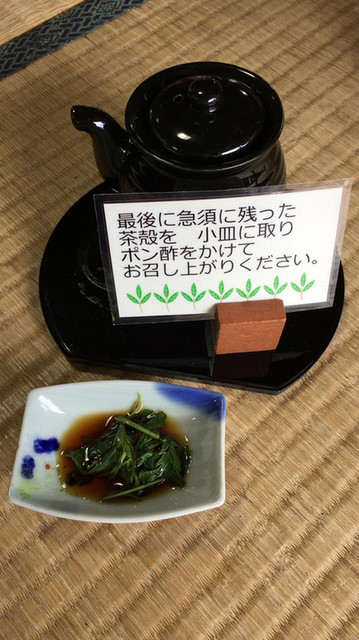 最後に急須に残った
茶殻を　小皿に取り
ポン酢をかけて
お召し上がりください。